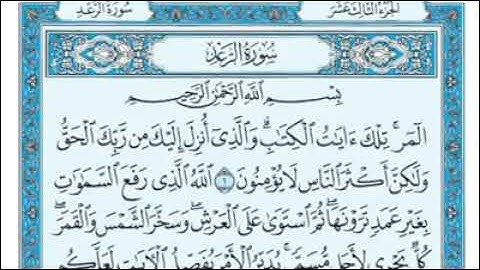 سُورَةُ الرَّعْدِ
الجُزْءُ الثَّالِثَ عَشَرَ
سُورَةُ الرَّعْدِ
بِسْمِ اللَّهِ الرَّحْمَٰنِ الرَّحِيمِ
الٓمٓر ۚ تِلْكَ ءَايَٰتُ الْكِتَٰبِ ۗ وَالَّذِىٓ أُنزِلَ إِلَيْكَ مِن رَّبِّكَ الْحَقُّ
وَلَٰكِنَّ أَكْثَرَ النَّاسِ لَا يُؤْمِنُونَ ١ اللَّهُ الَّذِى رَفَعَ السَّمَٰوَٰتِ
بِغَيْرِ عَمَدٍ تَرَوْنَهَا ۖ ثُمَّ اسْتَوَىٰ عَلَى الْعَرْشِ ۖ وَسَخَّرَ الشَّمْسَ وَالْقَمَرَ ۖ
كُلٌّ يَجْرِى لِأَجَلٍ مُّسَمًّى ۚ يُدَبِّرُ الْأَمْرَ يُفَصِّلُ الْءَايَٰتِ لَعَلَّكُم